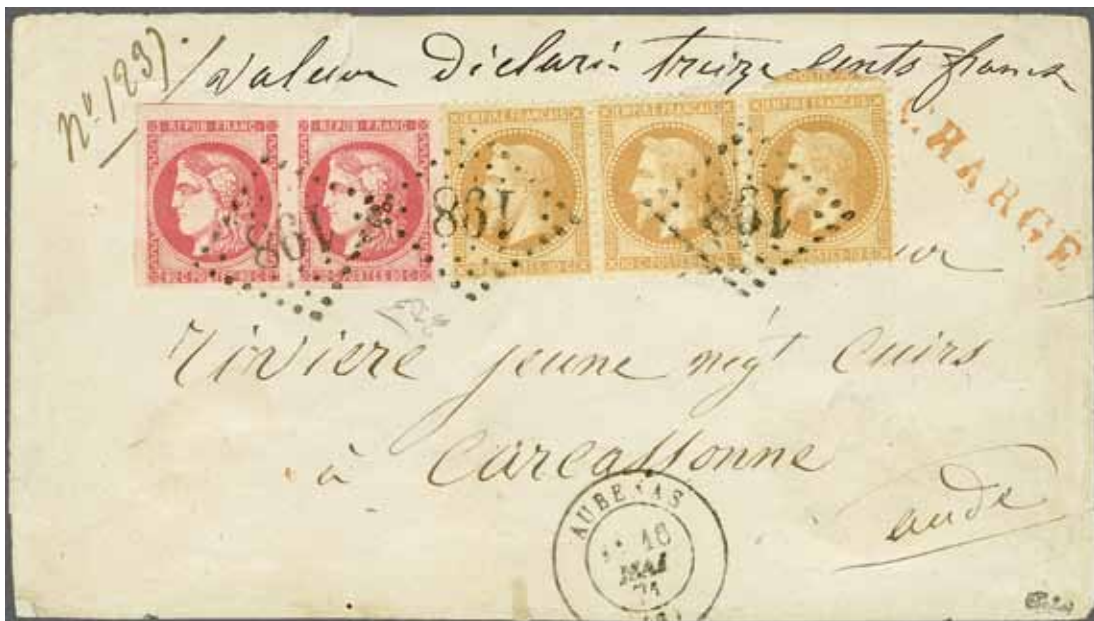 No 1237
Valeur Déclarée treize cents francs
REPUB · FRANC · REPUB · FRANC ·
EMPIRE FRANÇAIS EMPIRE FRANÇAIS EMPIRE FRANÇAIS
CHARGÉ
198 198 198
80 C · POSTES · 80 C 80 C · POSTES · 80 C
Rivière jeune négt Cuirs
à Carcassonne
aude
AUBENAS
16
MAI
71